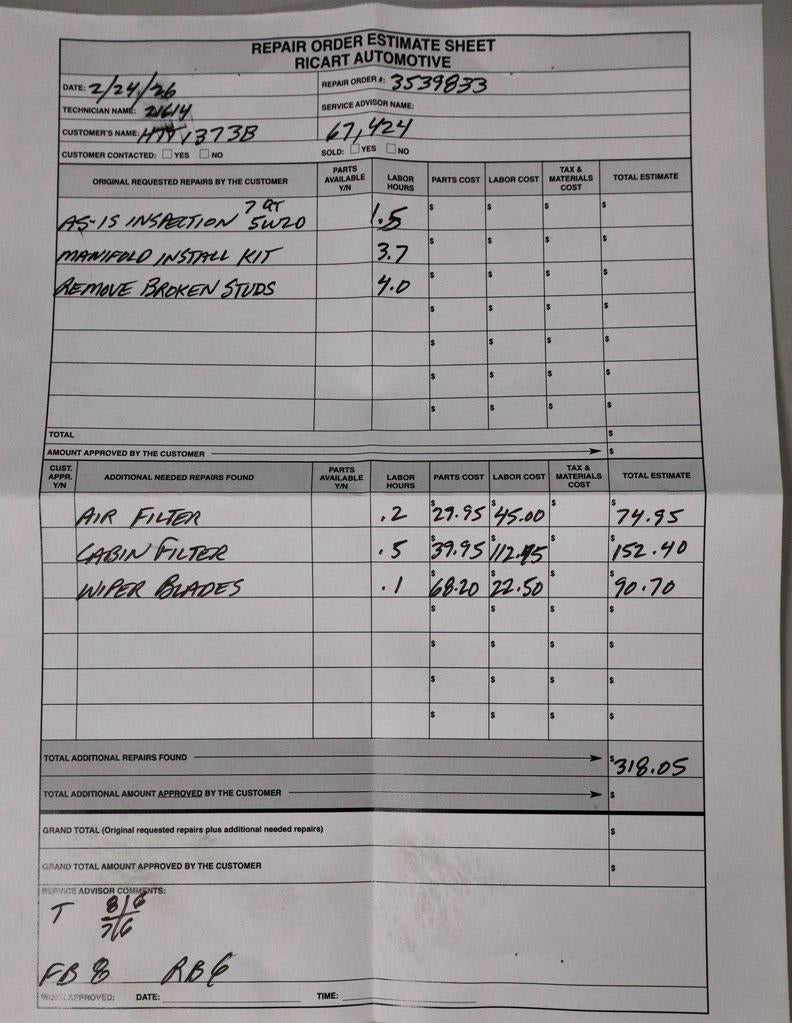 REPAIR ORDER ESTIMATE SHEET
RICART AUTOMOTIVE
DATE: 2/24/26 REPAIR ORDER #: 3539833
TECHNICIAN NAME: 21614 SERVICE ADVISOR NAME:
CUSTOMER'S NAME: 1373B 67,424
CUSTOMER CONTACTED: YES NO SOLD: YES NO
ORIGINAL REQUESTED REPAIRS BY THE CUSTOMER PARTS AVAILABLE Y/N LABOR HOURS PARTS COST LABOR COST TAX & MATERIALS COST TOTAL ESTIMATE
AS-IS INSPECTION 7 QT 5W20 1.5 $ $ $ $
MANIFOLD INSTALL KIT 3.7 $ $ $ $
REMOVE BROKEN STUDS 4.0 $ $ $ $
$ $ $ $
$ $ $ $
$ $ $ $
$ $ $ $
TOTAL $
AMOUNT APPROVED BY THE CUSTOMER $
CUST. APPR. Y/N ADDITIONAL NEEDED REPAIRS FOUND PARTS AVAILABLE Y/N LABOR HOURS PARTS COST LABOR COST TAX & MATERIALS COST TOTAL ESTIMATE
AIR FILTER .2 $29.95 $45.00 $ $74.95
CABIN FILTER .5 $39.95 $112.45 $ $152.40
WIPER BLADES .1 $68.20 $22.50 $ $90.70
$ $ $ $
$ $ $ $
$ $ $ $
$ $ $ $
TOTAL ADDITIONAL REPAIRS FOUND $318.05
TOTAL ADDITIONAL AMOUNT APPROVED BY THE CUSTOMER $
GRAND TOTAL (Original requested repairs plus additional needed repairs) $
GRAND TOTAL AMOUNT APPROVED BY THE CUSTOMER $
SERVICE ADVISOR COMMENTS:
T 8 6
7 6
FB 8 RB 6
WORK APPROVED: DATE: TIME: